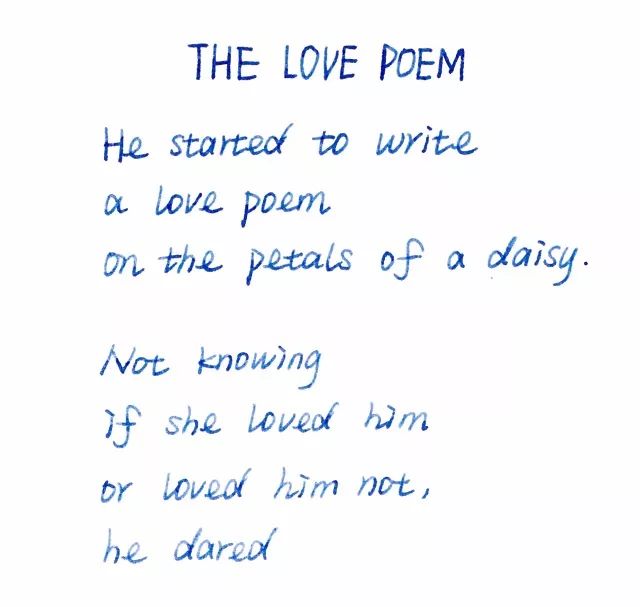 THE LOVE POEM
He started to write
a love poem
on the petals of a daisy.
Not knowing
if she loved him
or loved him not,
he dared